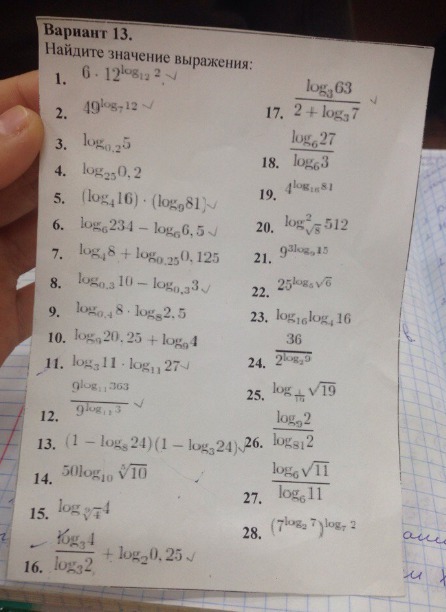 Вариант 13.
Найдите значение выражения:
1. 6 · 12^{log_{12} 2}
2. 49^{log_7 12}
3. log_{0,2} 5
4. log_{25} 0,2
5. (log_4 16) · (log_9 81)
6. log_6 234 − log_6 6,5
7. log_4 8 + log_{0,25} 0,125
8. log_{0,3} 10 − log_{0,3} 3
9. log_{0,4} 8 · log_8 2,5
10. log_9 20,25 + log_9 4
11. log_3 11 · log_{11} 27
12. \frac{9^{log_{11} 363}}{9^{log_{11} 3}}
13. (1 − log_8 24)(1 − log_3 24)
14. 50log_{10} \sqrt[5]{10}
15. log_{\sqrt[9]{4}} 4
16. \frac{log_3 4}{log_3 2} + log_2 0,25
17. \frac{log_3 63}{2 + log_3 7}
18. \frac{log_6 27}{log_6 3}
19. 4^{log_{16} 81}
20. log^2_{\sqrt{8}} 512
21. 9^{3log_9 15}
22. 25^{log_5 \sqrt{6}}
23. log_{16} log_4 16
24. \frac{36}{2^{log_2 9}}
25. log_{\frac{1}{19}} \sqrt{19}
26. \frac{log_9 2}{log_{81} 2}
27. \frac{log_6 \sqrt{11}}{log_6 11}
28. (7^{log_2 7})^{log_7 2}